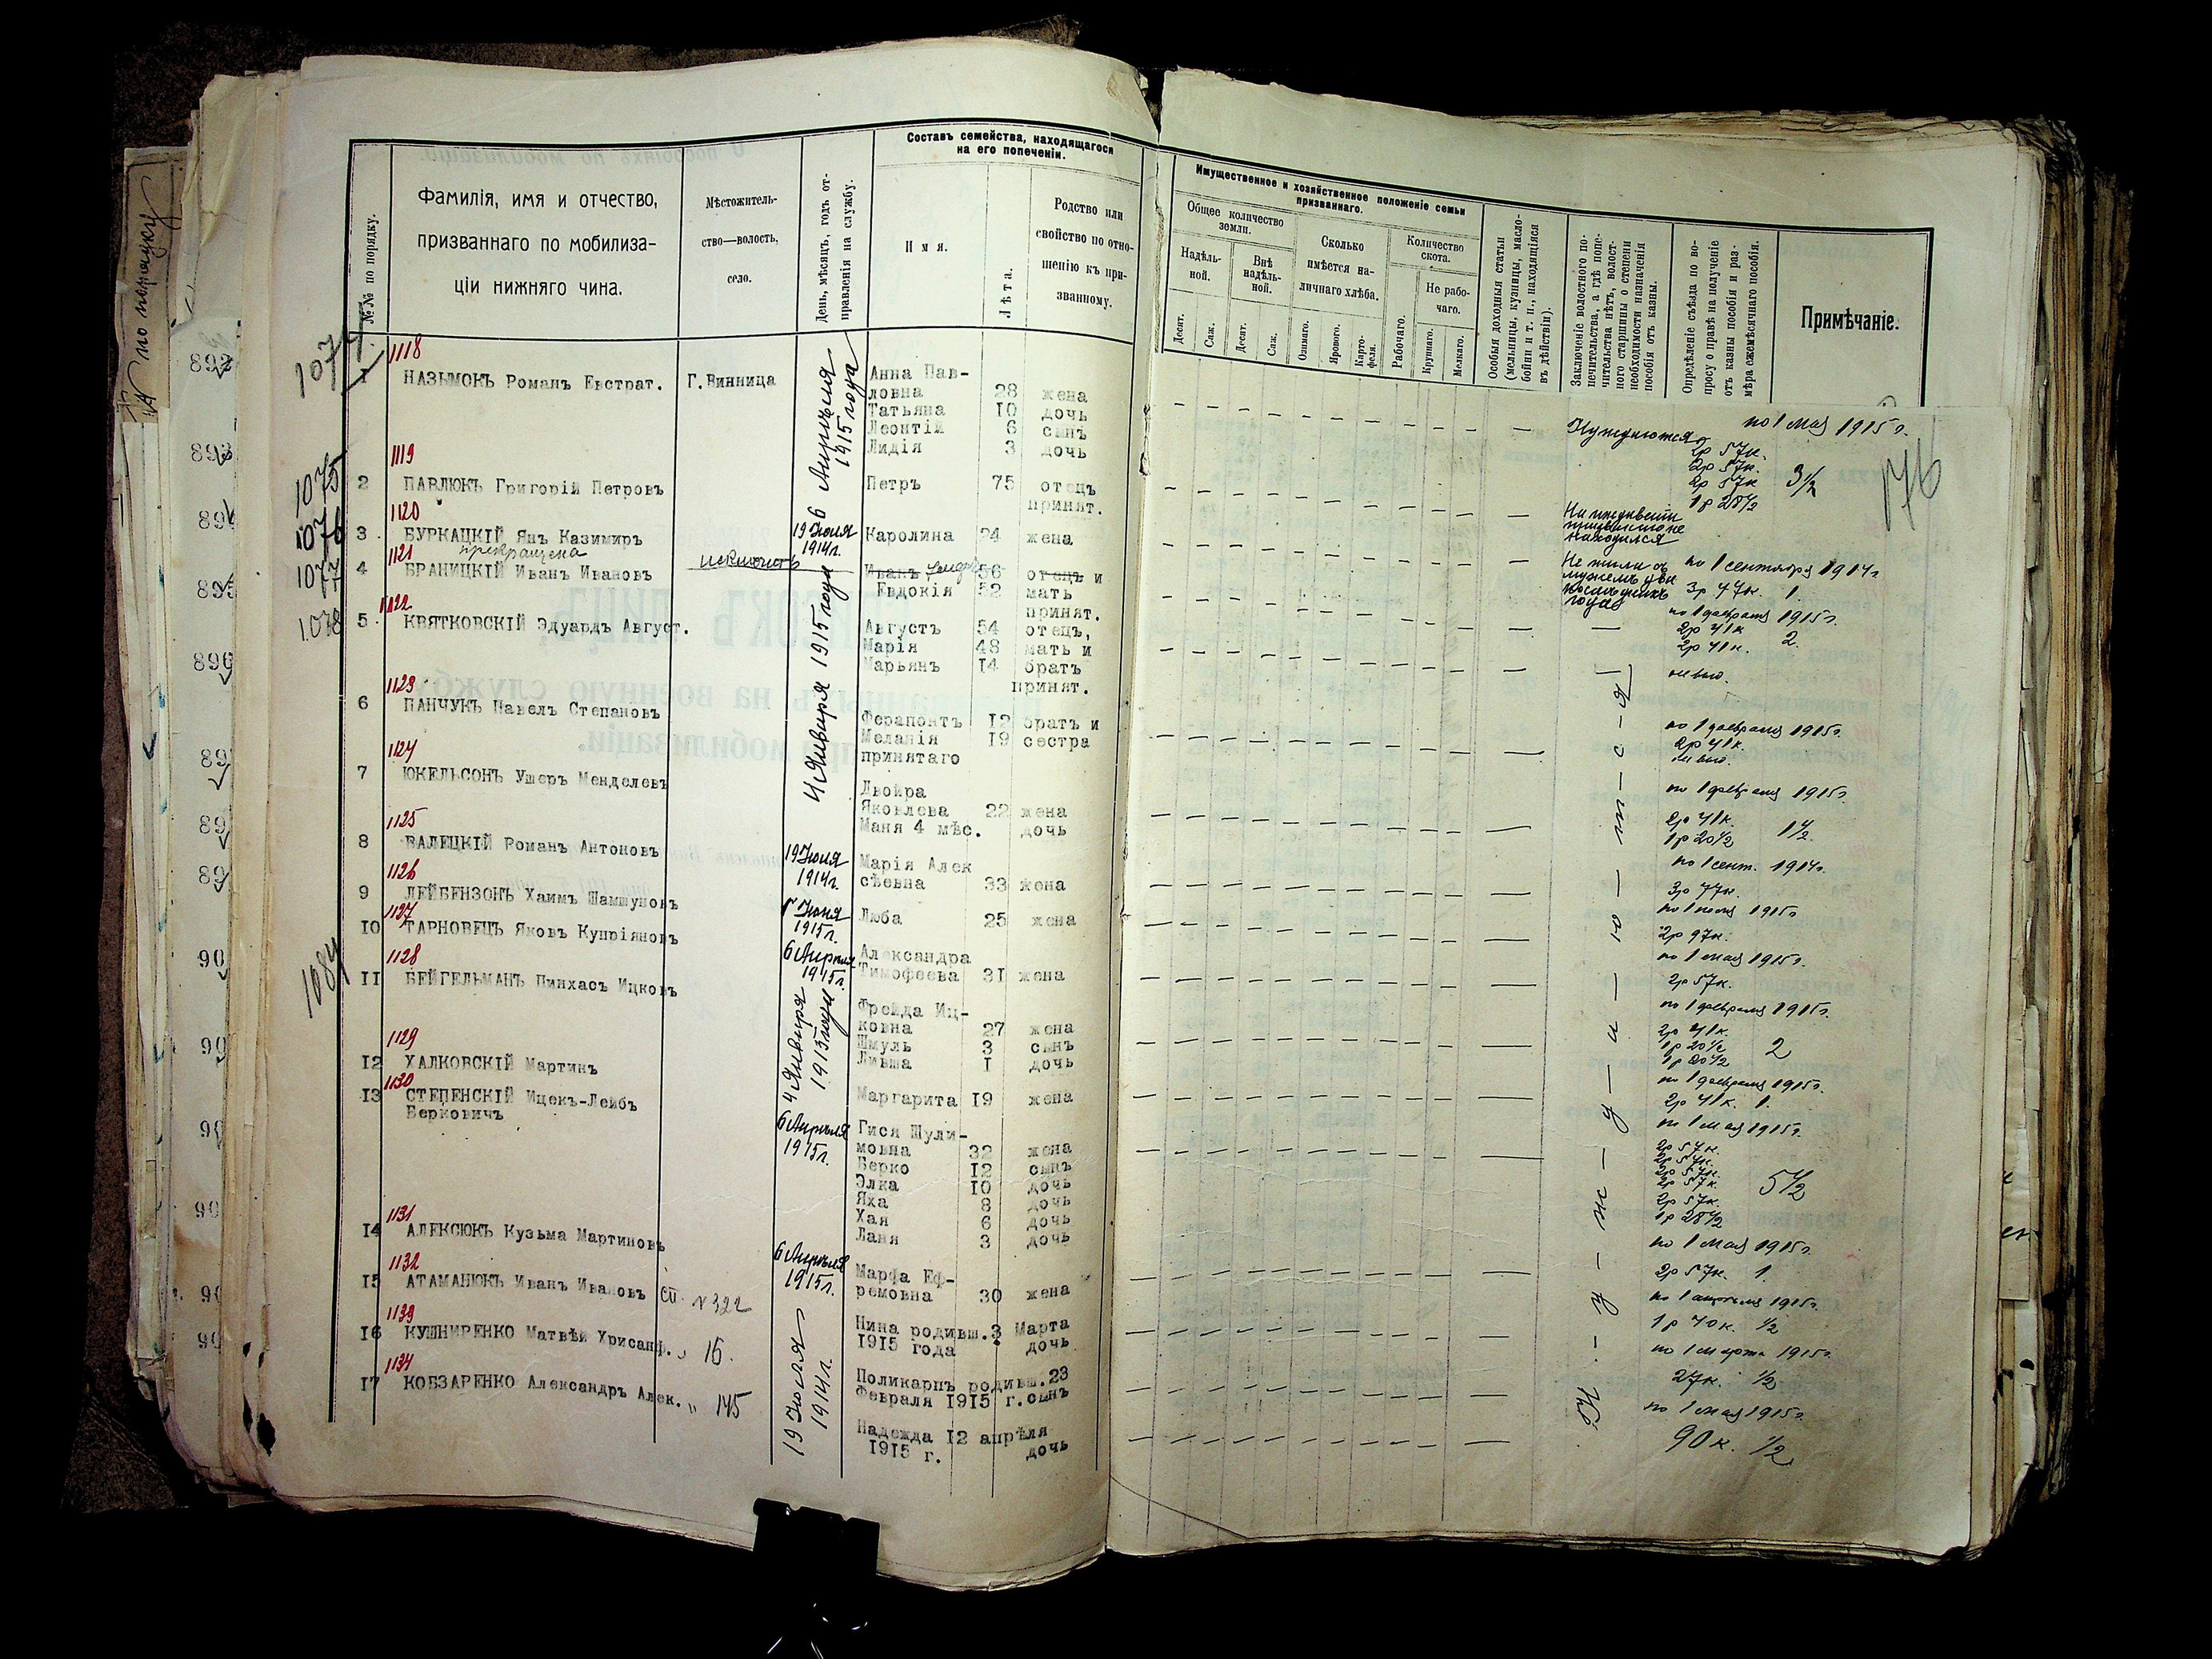 Составъ семейства, находящагося
на его попеченіи.
№№ по порядку.
Фамилія, имя и отчество,
призваннаго по мобилиза-
ціи нижняго чина.
Мѣстожитель-
ство—волость,
село.
День, мѣсяцъ, годъ от-
правленія на службу.
Имя.
Лѣта.
Родство или
свойство по отно-
шенію къ при-
званному.
Имущественное и хозяйственное положеніе семьи
призваннаго.
Общее количество
земли.
Надѣль-
ной.
Внѣ
надѣль-
ной.
Десят.
Саж.
Десят.
Саж.
Сколько
имѣется на-
личнаго хлѣба.
Озимаго.
Яроваго.
Карто-
феля.
Количество
скота.
Рабочаго.
Не рабо-
чаго.
Крупнаго.
Мелкаго.
Особыя доходныя статьи
(мельницы, кузницы, масло-
бойни и т. п., находящіяся
въ дѣйствіи).
Заключеніе волостного по-
печительства, а гдѣ попе-
чительства нѣтъ, волост-
ного старшины о степени
необходимости назначенія
пособія отъ казны.
Опредѣленіе съѣзда по во-
просу о правѣ на полученіе
отъ казны пособія и раз-
мѣра ежемѣсячнаго пособія.
Примѣчаніе.
176
1074
1118
1 НАЗЫМОКЪ Роман Евстрат. Г.Винница
6 Апрѣля
1915 года
Анна Пав-
ловна 28 жена
Татьяна 10 дочь
Леонтій 6 сынъ
Лидія 3 дочь
Нуждаются
по 1 мая 1915 г.
2р 57к.
2р 57к.
2р 57к 3½
1р 28½
1075
1119
2 ПАВЛЮКЪ Григорій Петровъ
Петръ 75 отецъ
принят.
находился
1076
1120
3 БУРКАЦКІЙ Янъ Казимиръ
19 Іюля
1914г.
Каролина 24 жена
Не жили съ
мужемъ два
послѣднихъ
года
по 1 сентября 1914г
3р 47к. 1.
1077
1121
прекращена
4 БРАНИЦКІЙ Иванъ Ивановъ
4 Января 1915 года
Иванъ 56 отецъ и
Евдокія 52 мать
принят.
по 1 февраля 1915г.
2р 41к
2р 41к. 2.
1078
1122
5 КВЯТКОВСКІЙ Эдуардъ Август.
Августъ 54 отецъ,
Марія 48 мать и
Марьянъ 14 братъ
принят.
1123
6 ПАНЧУКЪ Павелъ Степановъ
Ферапонтъ 12 братъ и
Меланія 19 сестра
принятаго
по 1 февраля 1915г.
2р 41к.
1124
7 ЮКЕЛЬСОНЪ Ушеръ Менделевъ
Двойра
Яковлева 22 жена
Маня 4 мѣс. дочь
по 1 февраля 1915г.
2р 41к.
1р 20½ 1½
1125
8 ВАЛЕЦКІЙ Романъ Антоновъ
19 Іюля
1914г.
Марія Алек
сѣевна 33 жена
по 1 сент. 1914г.
3р 77к.
1126
9 ЛЕЙБЕНЗОНЪ Хаимъ Шамшуновъ
Іюня
1915г.
Люба 25 жена
1915г
2р 97к.
1127
10 ТАРНОВЕЦЪ Яковъ Купріяновъ
6 Апрѣля
1915г.
Александра
Тимофеева 31 жена
по 1 мая 1915г.
2р 57к.
1084
1128
11 БЕЙГЕЛЬМАНЪ Пинхасъ Ицковъ
4 Января
1915 года
Фрейда Иц-
ковна 27 жена
Шмуль 3 сынъ
Ливша 1 дочь
по 1 февраля 1915г.
2р 41к.
1р 20½ 2
1р 20½
1129
12 ХАЛКОВСКІЙ Мартинъ
Маргарита 19 жена
по 1 февраля 1915г.
2р 41к. 1.
1130
13 СТЕПЕНСКІЙ Ицекъ-Лейбъ
Берковичъ
6 Апрѣля
1915г.
Гися Шули-
мовна 32 жена
Берко 12 сынъ
Элка 10 дочь
Яха 8 дочь
Хая 6 дочь
Ланя 3 дочь
по 1 мая 1915г.
2р 57к.
2р 57к.
2р 57к.
2р 57к. 5½
2р 57к.
1р 28½
1131
14 АЛЕКСЮКЪ Кузьма Мартиновъ
6 Апрѣля
1915г.
Марфа Еф-
ремовна 30 жена
по 1 мая 1915г.
2р 57к. 1.
1132
15 АТАМАНЮКЪ Иванъ Ивановъ сп. №322
19 Іюля
1914г.
Нина родивш.3 Марта
1915 года дочь
по 1 апрѣля 1915г.
1р 70к. ½
1133
16 КУШНИРЕНКО Матвѣй Хрисанф. " 16.
Поликарпъ родивш.23
Февраля 1915 г.сынъ
по 1 марта 1915г.
27к. ½
1134
17 КОБЗАРЕНКО Александръ Алек. " 145
Надежда 12 апрѣля
1915 г. дочь
по 1 мая 1915г.
90к. ½
Н-у-ж-д-а-ю-т-с-я
№ по порядку